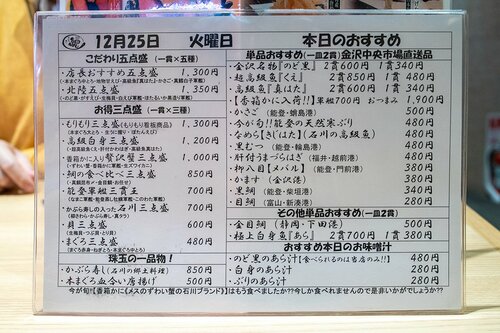 12月25日 火曜日 本日のおすすめ
こだわり五点盛 (一貫×五種)
・店長おすすめ五点盛 1,300円
・北陸五点盛 1,350円
お得三点盛 (一貫×三種)
・もりもり三点盛 1,300円
・高級白身三点盛 1,200円
・香箱かに入り贅沢蟹三点盛 1,000円
・鰤の食べ比べ三点盛 850円
・能登軍艦三点盛 700円
・かぶら寿しの入った石川三点盛 700円
・貝三点盛 600円
・まぐろ三点盛 480円
珠玉の一品物!
・かぶら寿し(石川の郷土料理) 850円
・本まぐろ血合い唐揚げ 500円
単品おすすめ(一皿2貫)金沢中央市場直送品
・金沢名物『のど黒』 2貫700円 1貫340円
・超高級魚『くえ』 2貫850円 480円
・高級魚『真はた』 2貫600円 1貫340円
・【香箱かに入荷!!】軍艦700円 おつまみ 1,900円
・かさご (能登・輪島港) 480円
・今が旬!!能登の天然寒ぶり 480円
・なめら【きじはた】(石川の高級魚) 480円
・黒むつ (能登・輪島港) 480円
・肝付うまづらはぎ (福井・越前港) 480円
・柳八目【メバル】 (能登・門前港) 380円
・かます (金沢港) 380円
・黒鯛 (能登・柴垣港) 340円
・目鯛 (富山・新湊港) 280円
その他単品おすすめ(一皿2貫)
・金目鯛 (静岡・下田港) 500円
・極上白身魚『あら』 2貫700円 1貫380円
おすすめ本日のお味噌汁
・のど黒のあら汁 【食べられるのは当店のみ!!】 480円
・白身のあら汁 280円
・ぶりのあら汁 280円
今が旬!【香箱かに(メスのずわい蟹の石川ブランド)】はもう食べましたか??今しか食べれませんので是非いかがでしょうか??